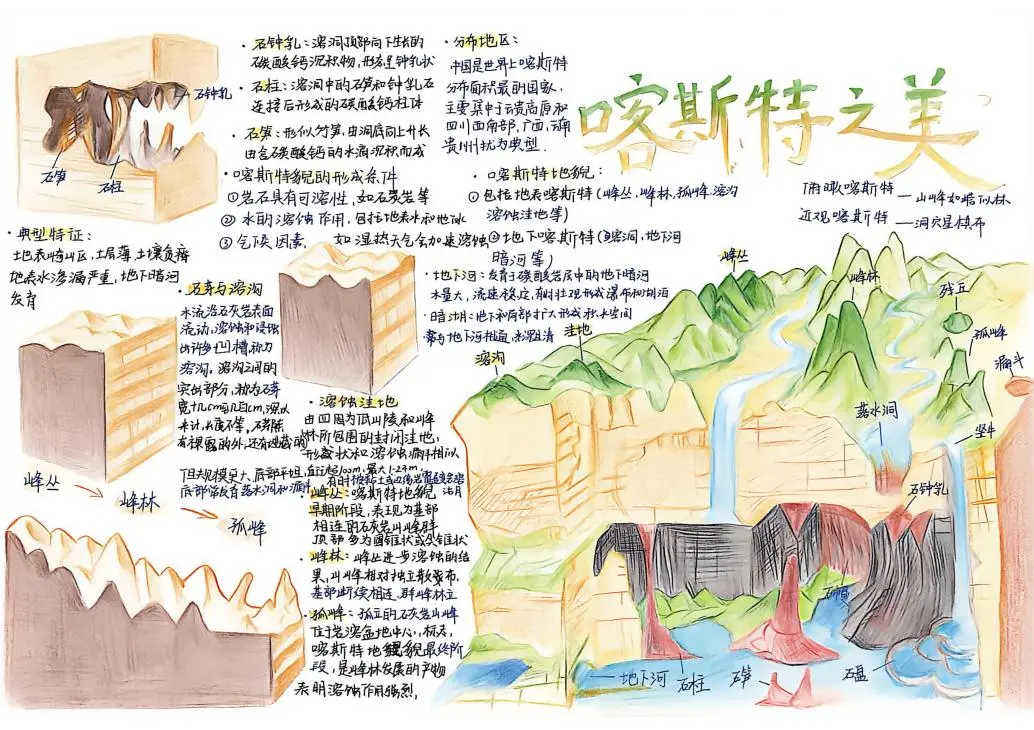 喀斯特之美
· 石钟乳：溶洞顶部向下生长的
碳酸钙沉积物，形态呈钟乳状
· 石柱：溶洞中的石笋和钟乳石
连接后形成的碳酸钙柱体
· 石笋：形似竹笋，由洞底向上升长
由含碳酸钙的水滴沉积而成
· 喀斯特貌的形成条件
①岩石具有可溶性，如石灰岩等
②水的溶蚀作用，包括地表水和地下水
③气候因素， 如湿热天气会加速溶蚀
· 分布地区：
中国是世界上喀斯特
分布面积最的国家，
主要集中于云贵高原和
四川西南部，广西，云南
贵州尤为典型.
· 喀斯特地貌：
①包括地表喀斯特（峰丛，峰林，孤峰溶沟
溶蚀洼地等）
②地下喀斯特（溶洞，地下河
暗河等）
俯瞰喀斯特——山峰如塔似林
近观喀斯特——洞穴星棋布
· 典型特征：
地表崎山区，土层薄，土壤贫瘠
地表水渗漏严重，地下暗河
发育
· 石芽与溶沟
水流沿石灰岩表面
流动，溶蚀和侵蚀
出许多凹槽，称为
溶沟，溶沟之间的
突出部分，称为石芽
· 地下河：发育于碳酸岩层中的地下暗河
水量大，流速
· 暗湖：地下和局部扩大形成积水空间
常与地下河相通，
· 溶蚀洼地
由四周为低山陵和峰
林所包围的封闭洼地，
形状和溶蚀漏斗相似
但规模更大，底部平坦，直径超100m，最大1-2km，
底部常发育落水洞和漏斗
· 峰丛：喀斯特地貌
早期阶段，表现为基部
相连的石灰岩山峰群
顶部多为圆锥状或尖锥状
· 峰林：峰丛进步溶蚀的结
果，山峰相对独立散发布，
基部断续相连，群峰林立
· 孤峰：孤立的石灰岩山峰
位于岩溶盆地中心，标志，
喀斯特地貌最终阶
段，是峰林发展的产物
表明溶蚀作用强烈.
石钟乳
石笋
石柱
峰丛
峰林
孤峰
峰丛
峰林
残丘
孤峰
漏斗
洼地
溶沟
落水洞
石钟乳
地下河
石柱
石笋